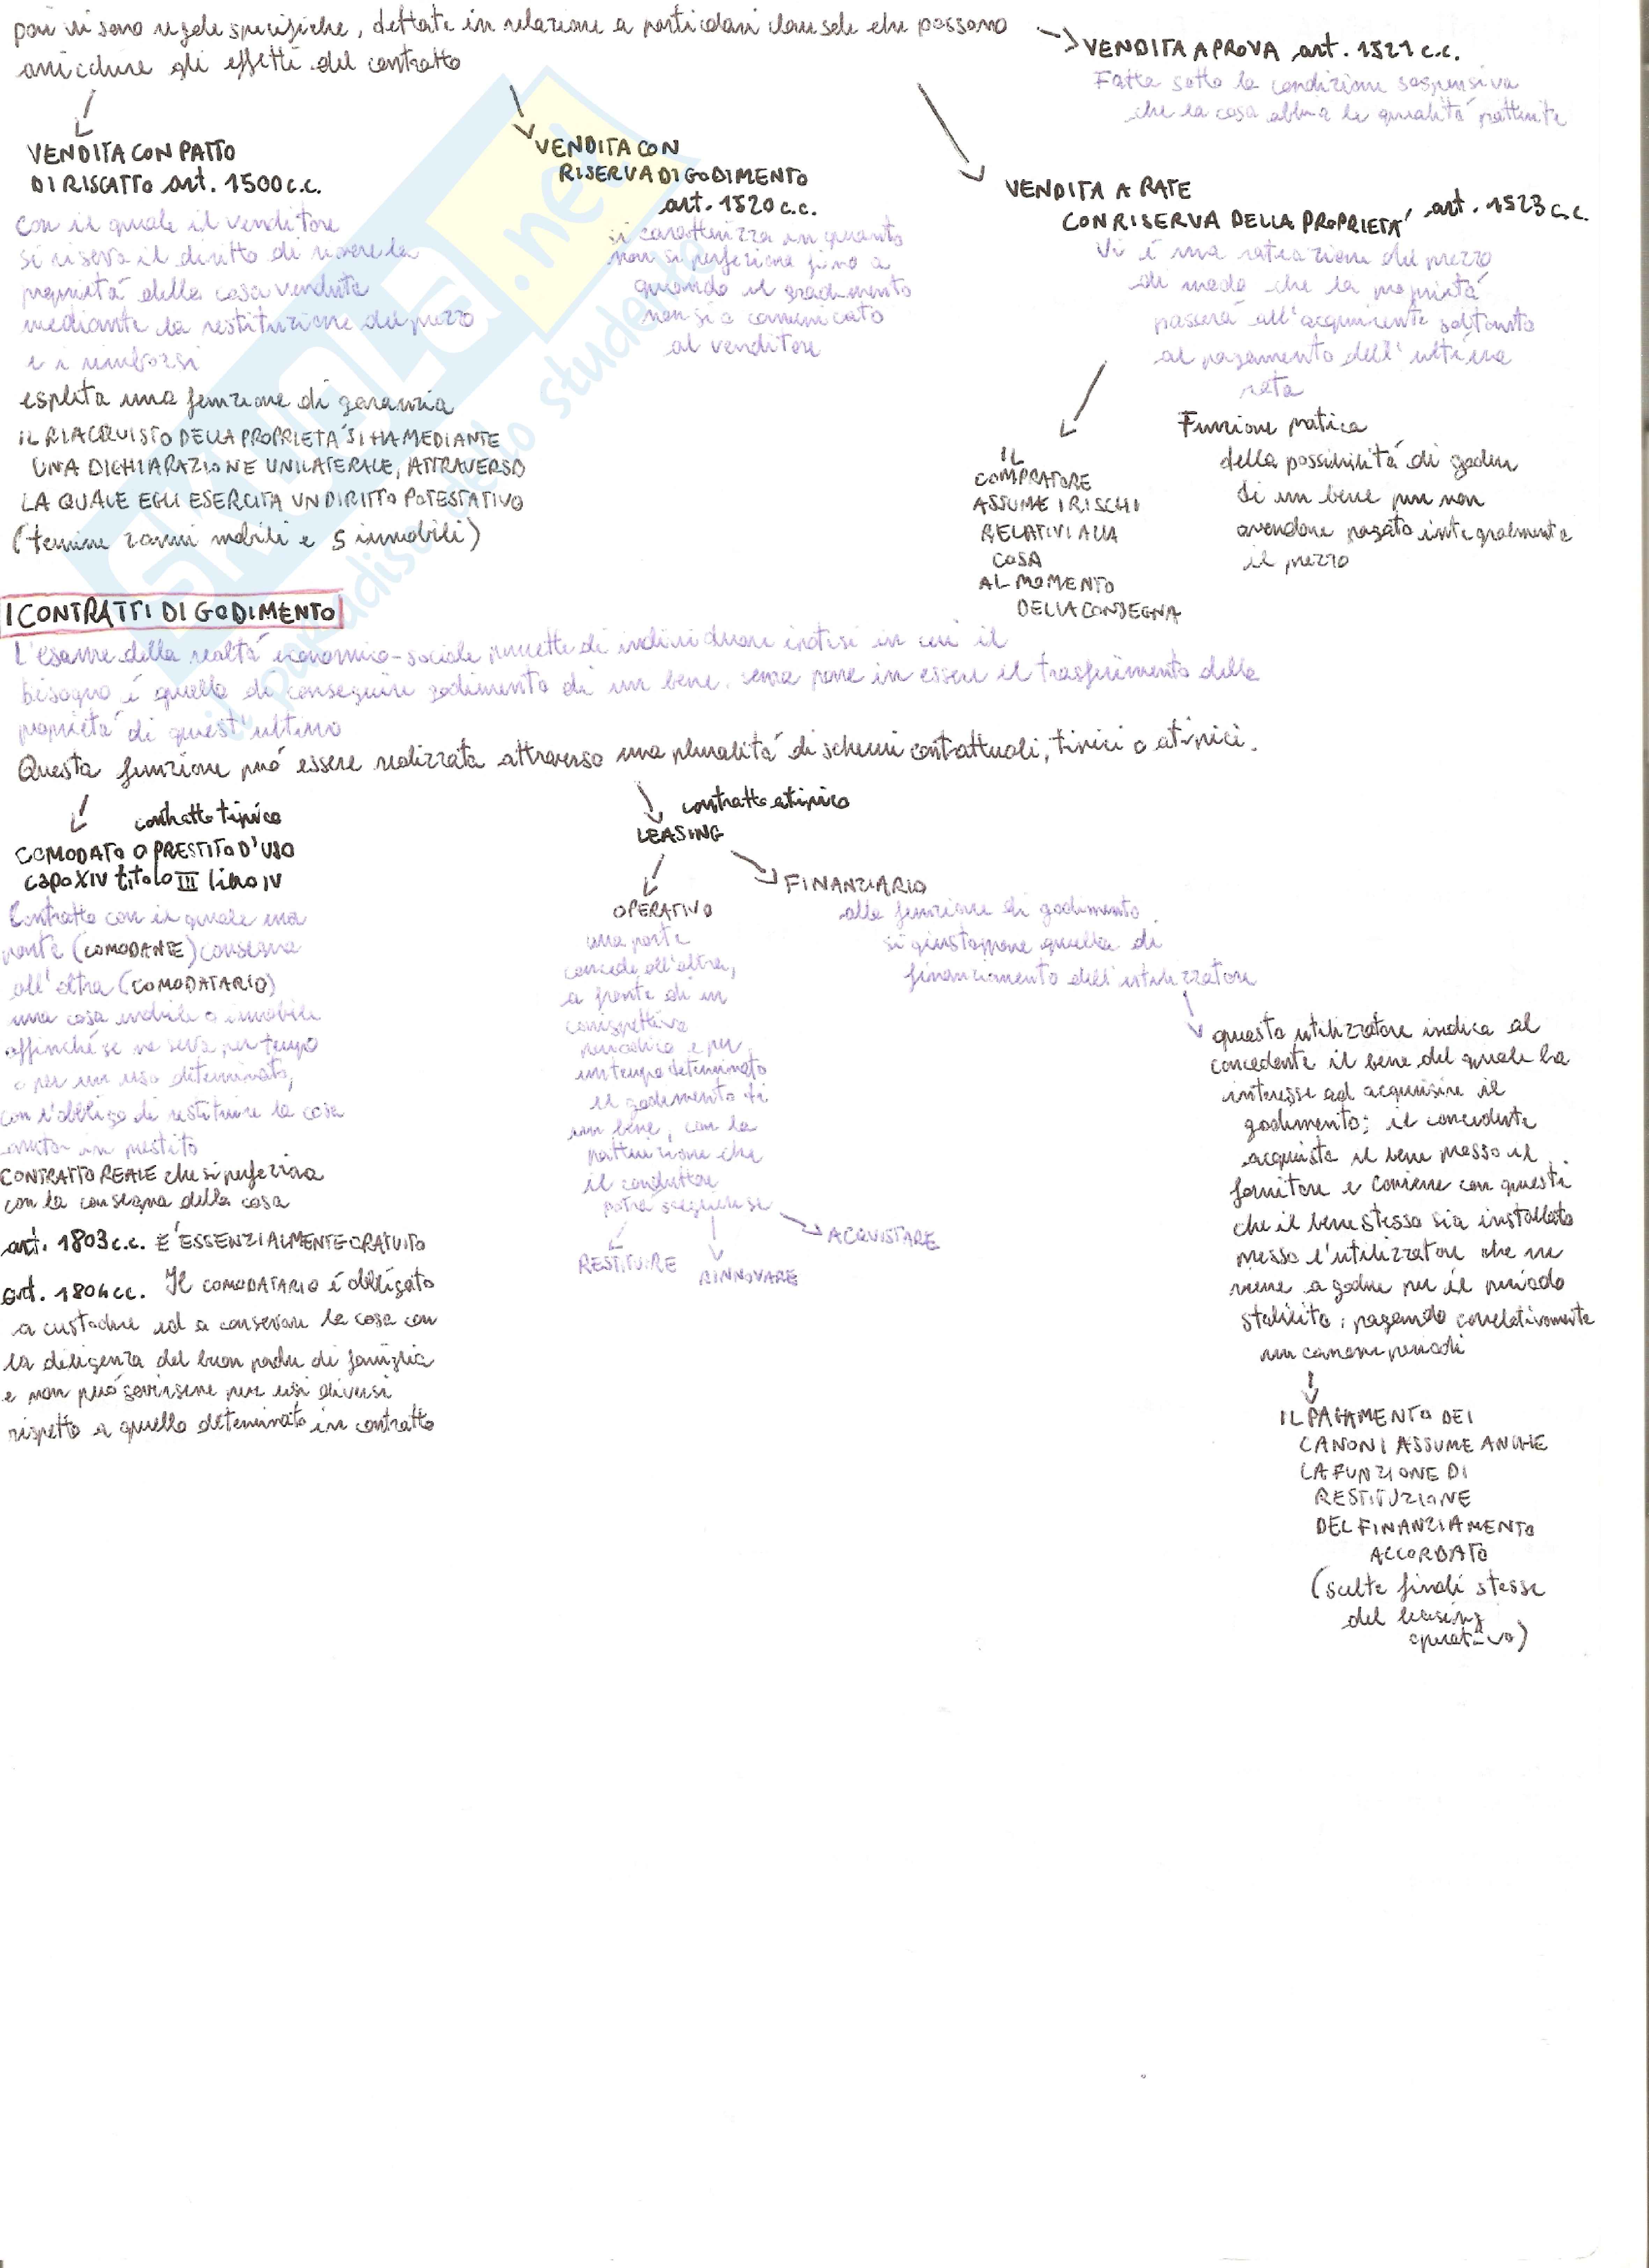 poi vi sono regole specifiche, dettate in relazione a particolari clausole che possono
arricchire gli effetti del contratto
VENDITA CON PATTO
DI RISCATTO art. 1500 c.c.
con il quale il venditore
si riserva il diritto di riavere la
proprietà della cosa venduta
mediante la restituzione del prezzo
e i rimborsi
esplita una funzione di garanzia
IL RIACQUISTO DELLA PROPRIETÀ SI HA MEDIANTE
UNA DICHIARAZIONE UNILATERALE, ATTRAVERSO
LA QUALE EGLI ESERCITA UN DIRITTO POTESTATIVO
(termine 2 anni mobili e 5 immobili)
VENDITA CON
RISERVA DI GODIMENTO
art. 1520 c.c.
si caratterizza in quanto
non si perfeziona fino a
quando il gradimento
non sia comunicato
al venditore
VENDITA A PROVA art. 1521 c.c.
Fatta sotto la condizione sospensiva
che la cosa abbia le qualità pattuite
VENDITA A RATE
CON RISERVA DELLA PROPRIETÀ art. 1523 c.c.
Vi è una rateazione del prezzo
di modo che la proprietà
passerà all'acquirente soltanto
al pagamento dell'ultima
rata
IL
COMPRATORE
ASSUME I RISCHI
RELATIVI ALLA
COSA
AL MOMENTO
DELLA CONSEGNA
Funzione pratica
della possibilità di goder
di un bene pur non
avendone pagato integralmente
il prezzo
I CONTRATTI DI GODIMENTO
L'esame della realtà economico-sociale permette di individuare ipotesi in cui il
bisogno è quello di conseguire godimento di un bene, senza porre in essere il trasferimento della
proprietà di quest'ultimo
Questa funzione può essere realizzata attraverso una pluralità di schemi contrattuali, tipici o atipici.
contratto tipico
COMODATO O PRESTITO D'USO
capo XIV titolo III libro IV
Contratto con il quale una
parte (COMODANTE) consegna
all'altra (COMODATARIO)
una cosa mobile o immobile
affinché se ne serva per tempo
o per un uso determinato,
con l'obbligo di restituire la cosa
avuta in prestito
CONTRATTO REALE che si perfeziona
con la consegna della cosa
art. 1803 c.c. È ESSENZIALMENTE GRATUITO
art. 1804 cc. Il COMODATARIO è obbligato
a custodire ed a conservare la cosa con
la diligenza del buon padre di famiglia
e non può servirsene per usi diversi
rispetto a quello determinato in contratto
contratto atipico
LEASING
OPERATIVO
una parte
concede all'altra,
a fronte di un
corrispettivo
periodico e per
un tempo determinato
il godimento di
un bene, con la
pattuizione che
il conduttore
potrà scegliere se
RESTITUIRE
RINNOVARE
ACQUISTARE
FINANZIARIO
alla funzione di godimento
si giustappone quella di
finanziamento dell'utilizzatore
questo utilizzatore indica al
concedente il bene del quale ha
interesse ad acquisire il
godimento; il concedente
acquista il bene presso il
fornitore e conviene con questi
che il bene stesso sia installato
presso l'utilizzatore che ne
viene a godere per il periodo
stabilito, pagando correlativamente
un canone periodi
IL PAGAMENTO DEI
CANONI ASSUME ANCHE
LA FUNZIONE DI
RESTITUZIONE
DEL FINANZIAMENTO
ACCORDATO
(scelte finali stesse
del leasing
operativo)
SKUOLA.net
il paradiso dello studente